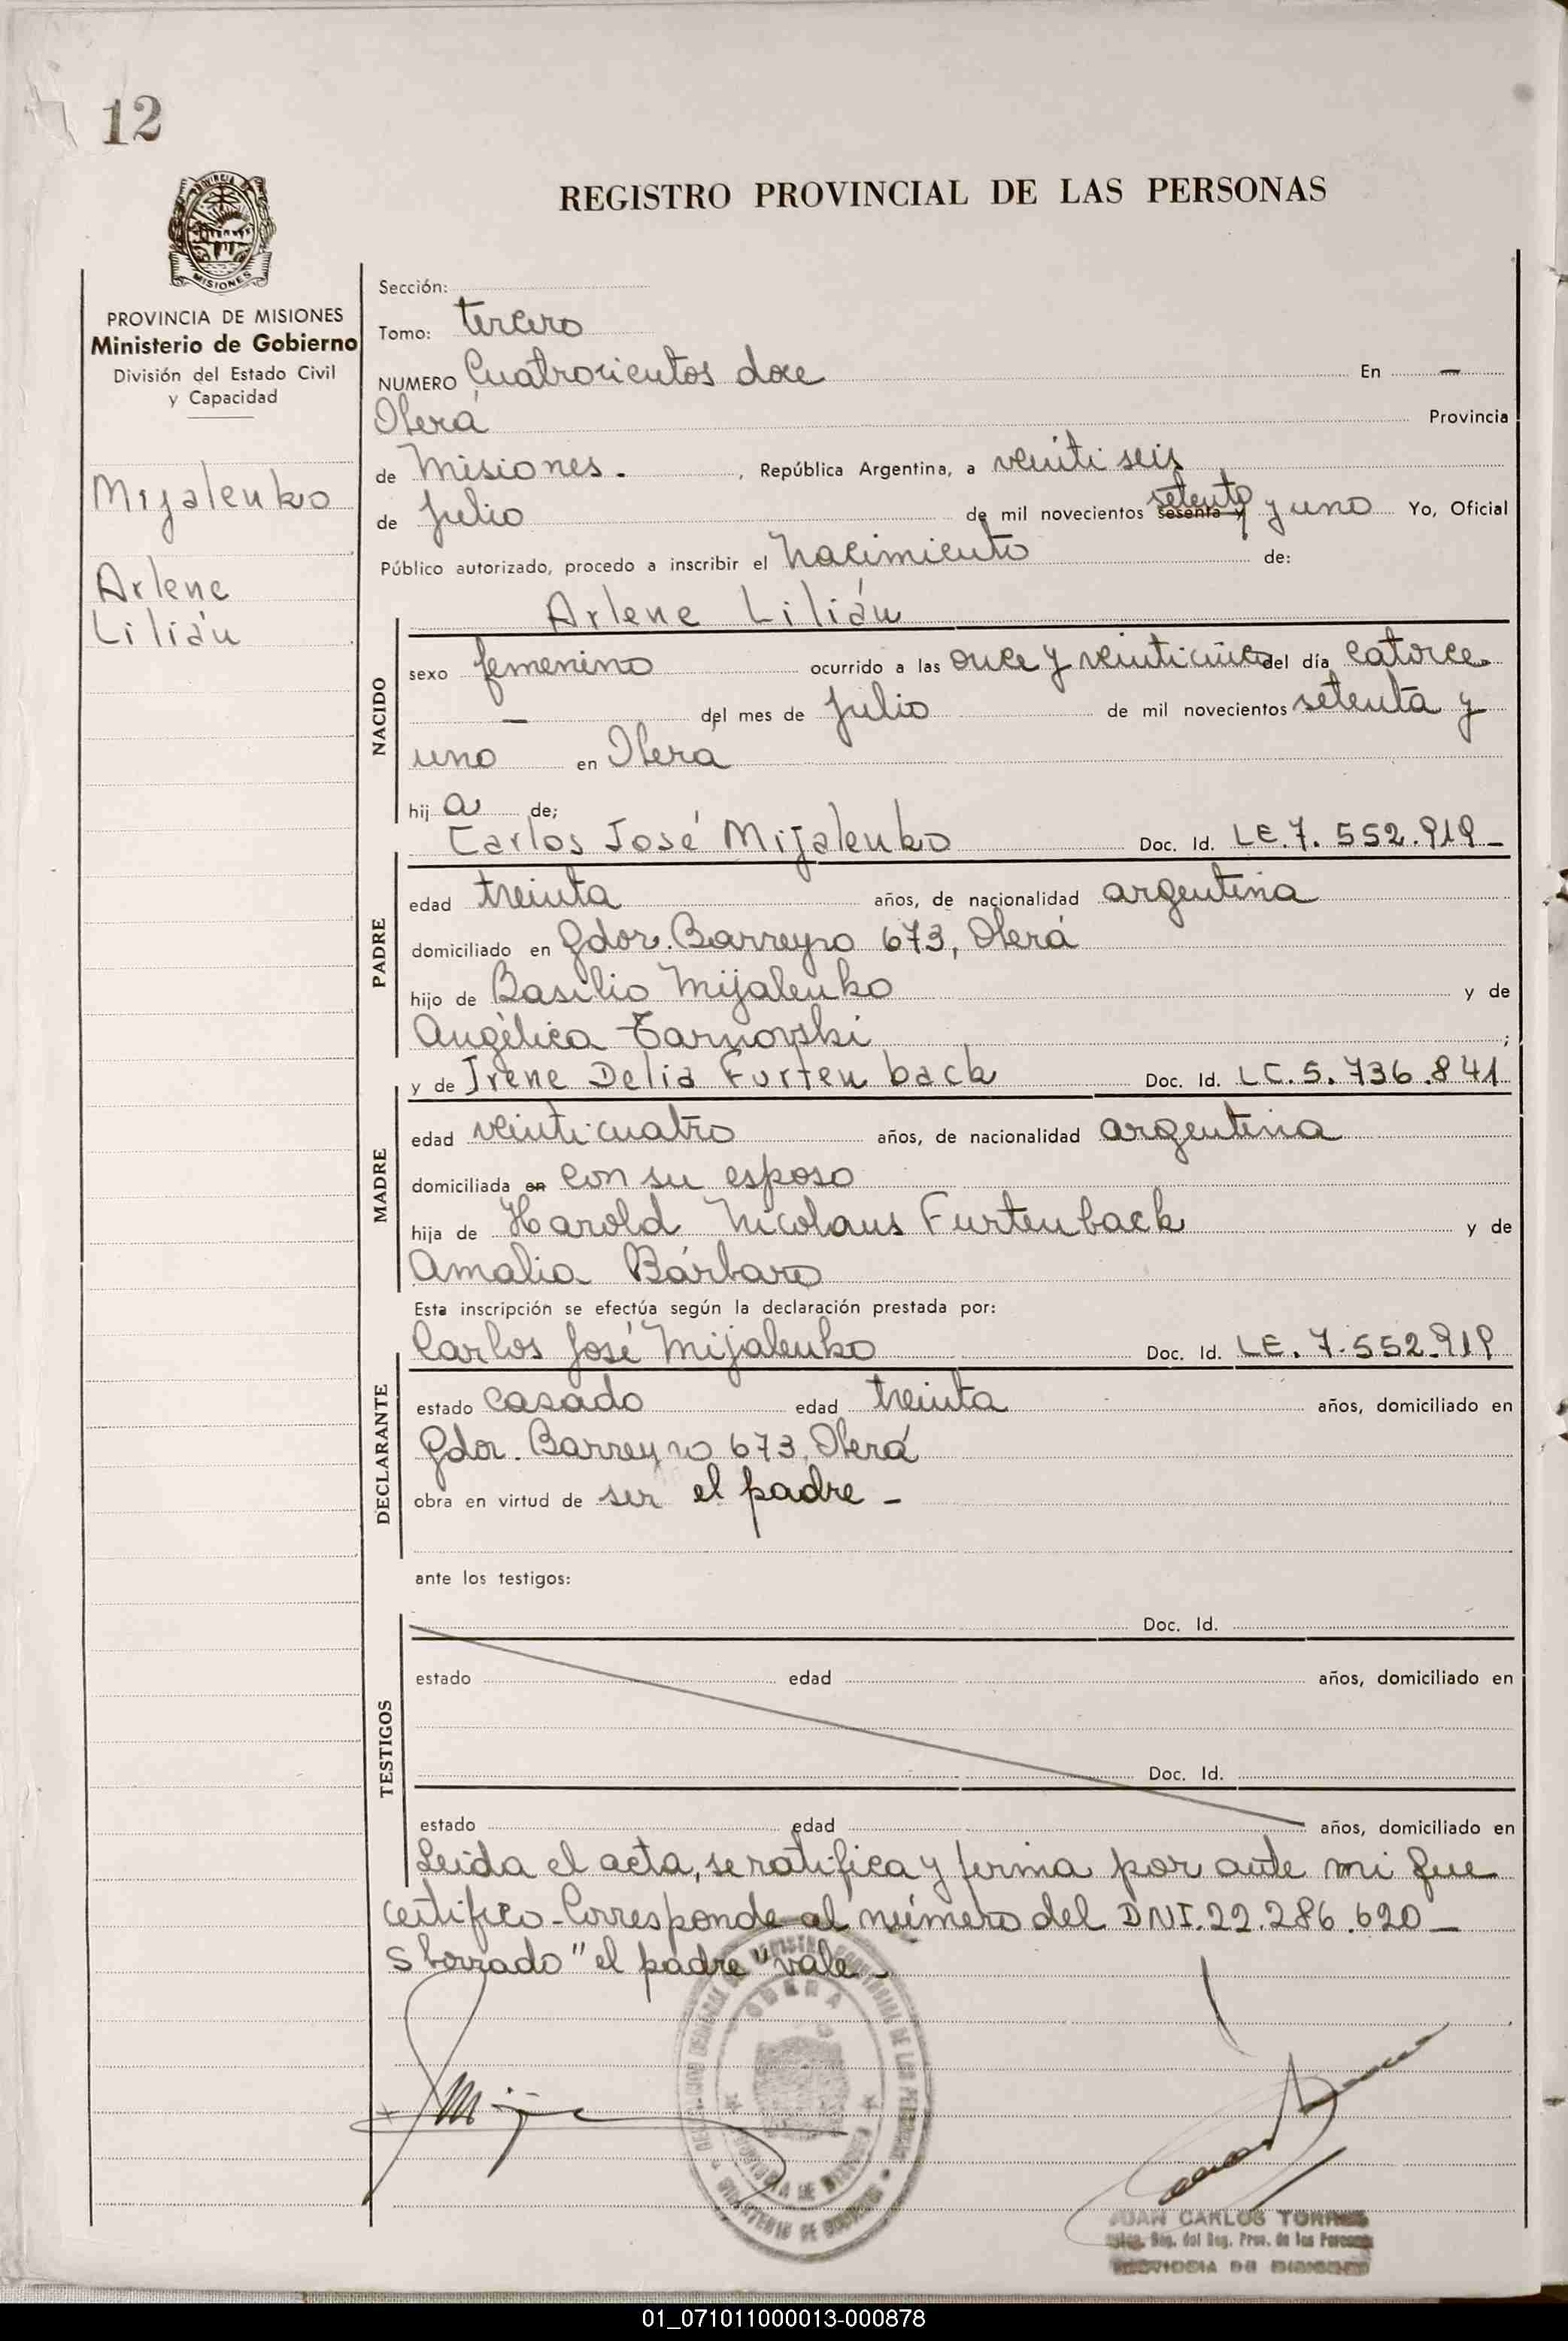 12
REGISTRO PROVINCIAL DE LAS PERSONAS
MISIONES
PROVINCIA DE MISIONES
Ministerio de Gobierno
División del Estado Civil
y Capacidad
Mijalenko
Arlene
Lilián
Sección:
Tomo: tercero
NUMERO Cuatrocientos doce En —
Oberá Provincia
de Misiones. , República Argentina, a veinti seis
de julio de mil novecientos sesenta y setenta y uno Yo, Oficial
Público autorizado, procedo a inscribir el nacimiento de:
Arlene Lilián
NACIDO
sexo femenino ocurrido a las once y veinticinco del día catorce
— del mes de julio de mil novecientos setenta y
uno en Oberá
hij a de;
Carlos José Mijalenko Doc. Id. LE. 7. 552.919 -
PADRE
edad treinta años, de nacionalidad argentina
domiciliado en Gdor. Barreyro 673, Oberá
hijo de Basilio Mijalenko y de
Angélica Tarnovski ;
y de Irene Delia Furtenback Doc. Id. LC. 5. 736.841
MADRE
edad veinticuatro años, de nacionalidad argentina
domiciliada en con su esposo
hija de Harold Nicolaus Furtenback y de
Amalia Bárbaro
Esta inscripción se efectúa según la declaración prestada por:
Carlos José Mijalenko Doc. Id. LE. 7.552.919
DECLARANTE
estado casado edad treinta años, domiciliado en
Gdor. Barreyro 673, Oberá
obra en virtud de ser el padre -
ante los testigos:
Doc. Id.
TESTIGOS
estado edad años, domiciliado en
Doc. Id.
estado edad años, domiciliado en
Leida el acta, se ratifica y firma por ante mi que
certifico - Corresponde al número del DNI. 22.286.620 -
S borrado "el padre" vale -
OBERA
JUAN CARLOS TORRES
Reg. del Reg. Prov. de las Personas
PROVINCIA DE MISIONES
01_071011000013-000878